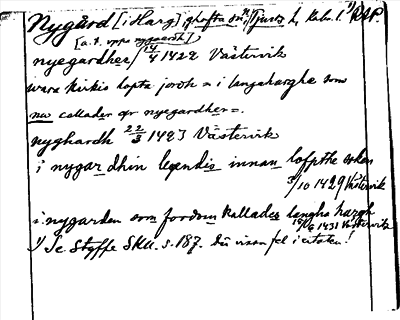 Nygård [i Harg], Tjust h, Kalm. l. 1) RAP.
[a.t. upps nygaerdh]
nyegardher 14/4 1422 Västervik
wara kirkis lopta jordh = i langaharghe som
nu callader ær nyegardher =.
nyghardh 22/3 1423 Västervik
i nygardhin legendis innan lofftha soken
3/10 1429 Västervik
i nygarden som fordum kallades langha hargh
1431 Västervik
1) Se Styffe SKU. s. 187. Där visar fel i citaten!